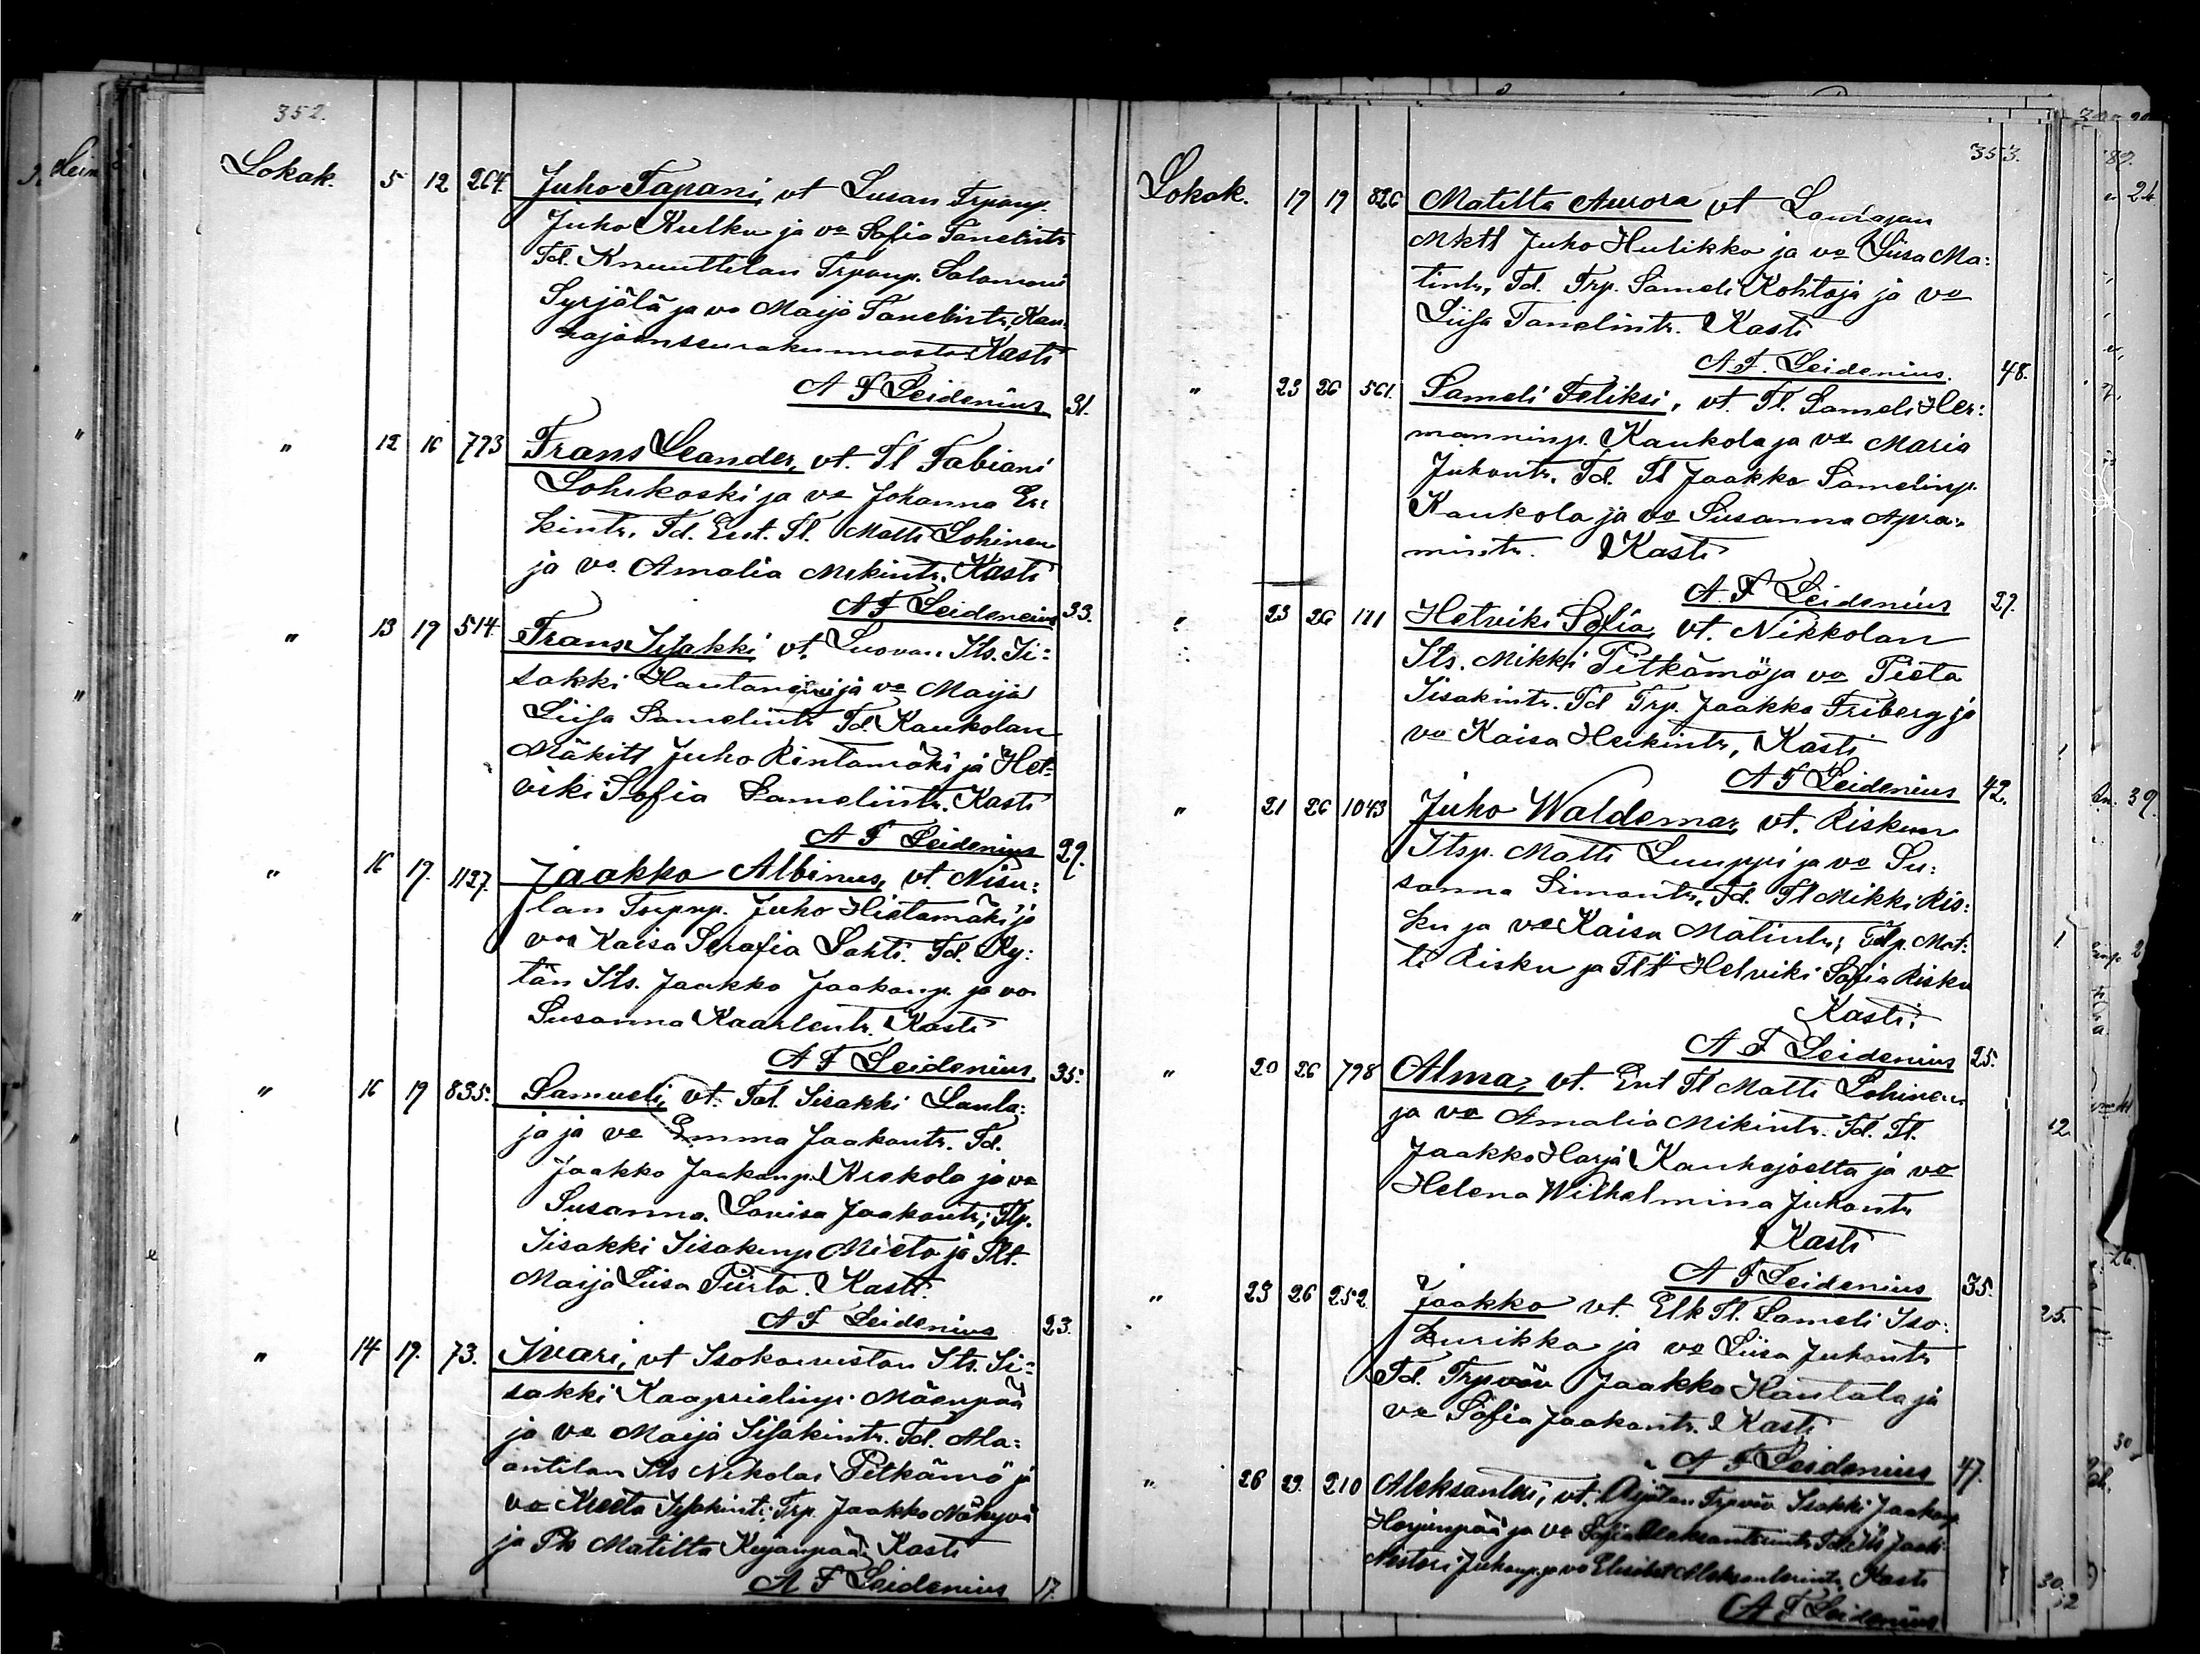 352.
Lokak. 5 12 264. Juho Tapani, vt Susan Trpanp.
Juho Kulku ja vo Sofia Tanelintr
Td. Knuuttilan Trpanp. Salomoni
Syrjälä ja vo Maija Tanelintr, Kau-
hajoen seurakunnasta Kasti
A F Leidenius 31.
" 12 16 773 Frans Leander, vt. Tl Fabiani
Lohikoski ja vo Johanna Er:
kintr. Td. Ent. Tl. Matti Lohinen
ja vo Amalia Mikintr. Kasti
A F Leidenius 33.
" 13 19 514. Frans Iisakki vt. Luovan Its. Ii:
sakki ja vo Maija
Liisa Samelintr Td. Kaukolan
Mäkitl Juho Rintamäki ja Het:
viki Sofia Samelintr. Kasti
A F Leidenius 29.
" 16 19. 1127. Jaakko Albinus, vt. Nisu:
lan Torpanp. Juho Hietamäki ja
vo Kaisa Serafia Lahti. Td. Ry:
tän Its. Jaakko Jaakonp. ja vo
Susanna Kaarlentr. Kasti
A F Leidenius 35.
" 16 19 835. Samueli, vt. Tal. Iisakki Laula:
ja ja vo Emma Jaakontr. Td.
Jaakko Jaakonp. Krekola ja vo
Susanna Lovisa Jaakontr; Tlp.
Iisakki Iisakinp Mieto ja Tlt.
Maija Liisa Piirto. Kasti
A F Leidenius 23.
" 14 19. 73. Ivari, vt Isokorvestan Its. Ii:
sakki Kaaprielinp. Mäenpää
ja vo Maija Iisakintr. Td. Ala:
antilan Its Nikolai Pitkämö ja
vo Kreeta Iisakintr; Trp. Jaakko Näkyvä
ja Matilta Kujanpää. Kasti
A F Leidenius 17.
353.
Lokak. 19 19 826 Matilta Aurora vt Laurajan
Mktl Juho Hulikko ja vo Liisa Ma:
tintr, Td. Trp. Sameli Kohtaja ja vo
Liisa Tanelintr. Kasti
A F. Leidenius. 48.
" 23 26 561. Sameli Feliksi, vt. Tl. Sameli Her:
manninp. Kaukola ja vo Maria
Juhontr. Td. Tl Jaakko Samelinp.
Kaukola ja vo Susanna Apra:
mintr. Kasti
A. F Leidenius 27.
" 23 26 111 Hetviki Sofia, vt. Nikkolan
Its. Mikki Pitkämö ja vo Pieta
Iisakintr. Td Trp. Jaakko Friberg ja
vo Kaisa Heikintr, Kasti
A F Leidenius 42.
" 21 26 1043 Juho Waldemar, vt. Riskun
Itsp. Matti Luuppi ja vo Su:
sanna Simontr, Td. Tl Mikki Ris:
ku ja vo Kaisa Matintr; Tlp. Mat:
ti Risku ja Tlt Hetviki Sofia Risku
Kasti.
A F Leidenius 25.
" 20 26 798 Alma, vt. Ent Tl Matti Lohinen
ja vo Amalia Mikintr. Td. Tl.
Jaakko Harja Kauhajoelta ja vo
Helena Wilhelmina Juhontr
Kasti
A F Leidenius 35.
" 23 26 252. Jaakko vt. Elk Tl. Sameli Iso:
kurikka ja vo Liisa Juhontr
Td. Trpväv Jaakko Hautala ja
vo Sofia Jaakontr. Kasti
A F Leidenius 47.
" 26 29. 210 Aleksanteri, vt. Trpväv Isakki Jaakonp
Harjunpää ja vo Sofia Aleksanterintr Td. Its Jaak.
Nestori Juhonp. ja vo Elisabet Aleksanterintr. Kasti
A F Leidenius